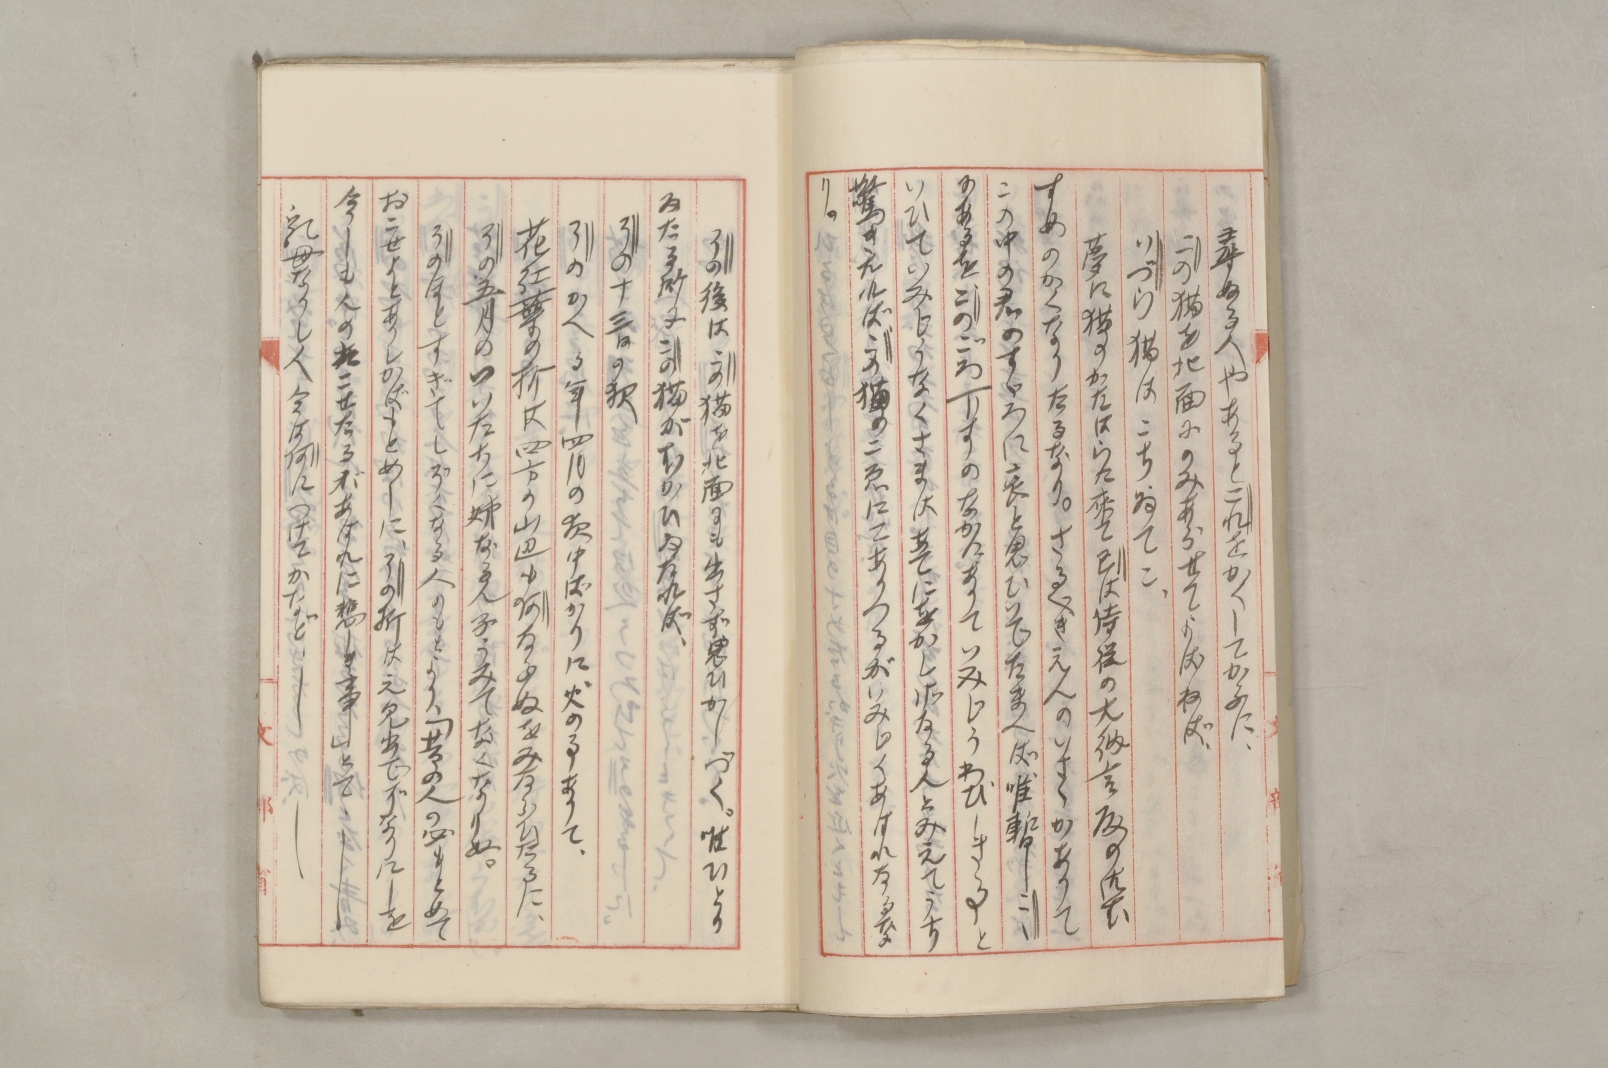 尋ぬる人やあるとこれをかくしてかふに、
この猫を北面にのみあらせてよばねば、
いづら猫はこちゐてこ、
夢に猫のかたはらに来て己は侍従の大納言殿の御む
すめのかくなりたるなり。さるべきえんのいさゝかありて
この中の君のすゞろに哀と思ひいでたまへば唯暫しこゝ
のあるをこのごろ下すのなかにありていみじうわびしきことと
いひていみじうなくさまは
驚きたればこの猫のこゑにてありつるがいみじくあはれなるな
り。
その後はこの猫を北面にも出さず思ひかしづく。唯ひとり
ゐたる所にこの猫がむかひゐたれば、
その十三日の夜
そのかへる年四月の夜中ばかりに火の事ありて、
花紅葉の折は四方の山辺も何なるぬをみならひたるに、
その五月のついたちに姉なる人子うみてなくなりぬ。
そのほどすぎてしぞくなる人のもとより、「昔の人の必もとめて
おこせよとありしかばもとめしに、その折はえ見出でずなりにしを
今しも人のおこせたるがあはれに悲しき事」とて
乳母なりし人今は何につけてかなど
文部省